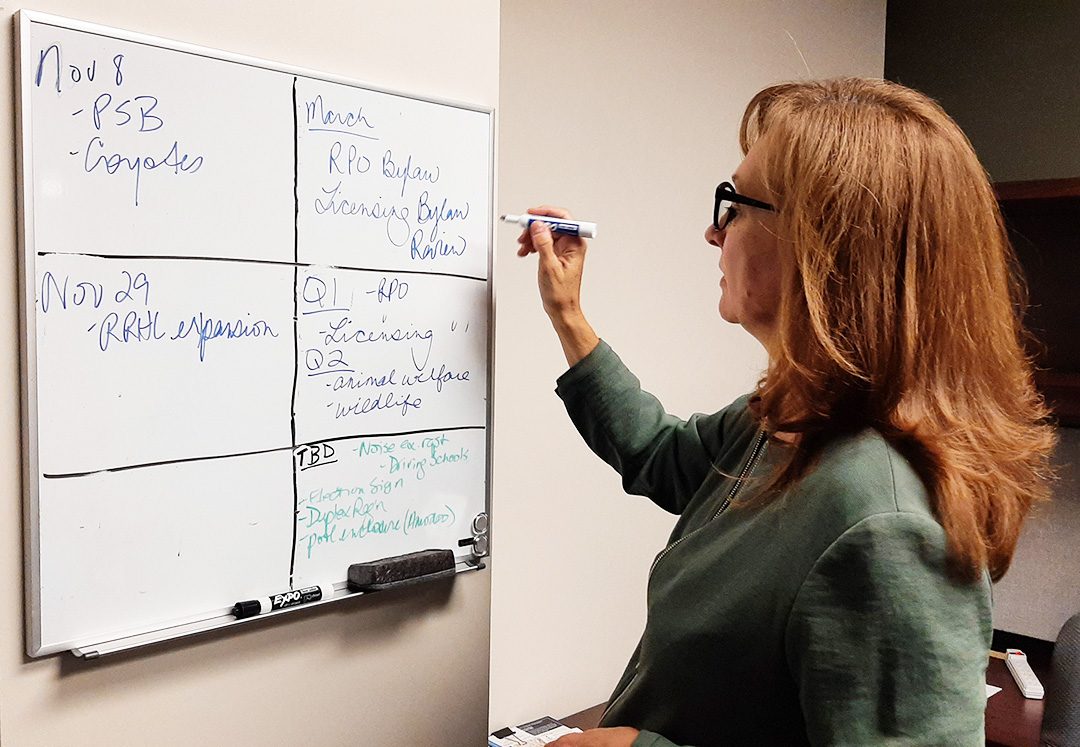 Nov 8
- PSB
- Coyotes
March
RPO Bylaw
Licensing Bylaw
Review
Nov 29
- RRHL expansion
Q1 - RPO
- Licensing " "
Q2
- animal welfare
- wildlife
TBD - Noise ex. rqst
- Driving Schools
- Election Sign
- Duplex Reg'n
- pool enclosure
EXPO